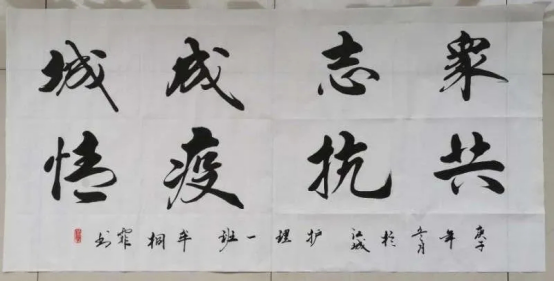 眾志成城
共抗疫情
庚子年 月於江城 护理一班 牟桐霏书